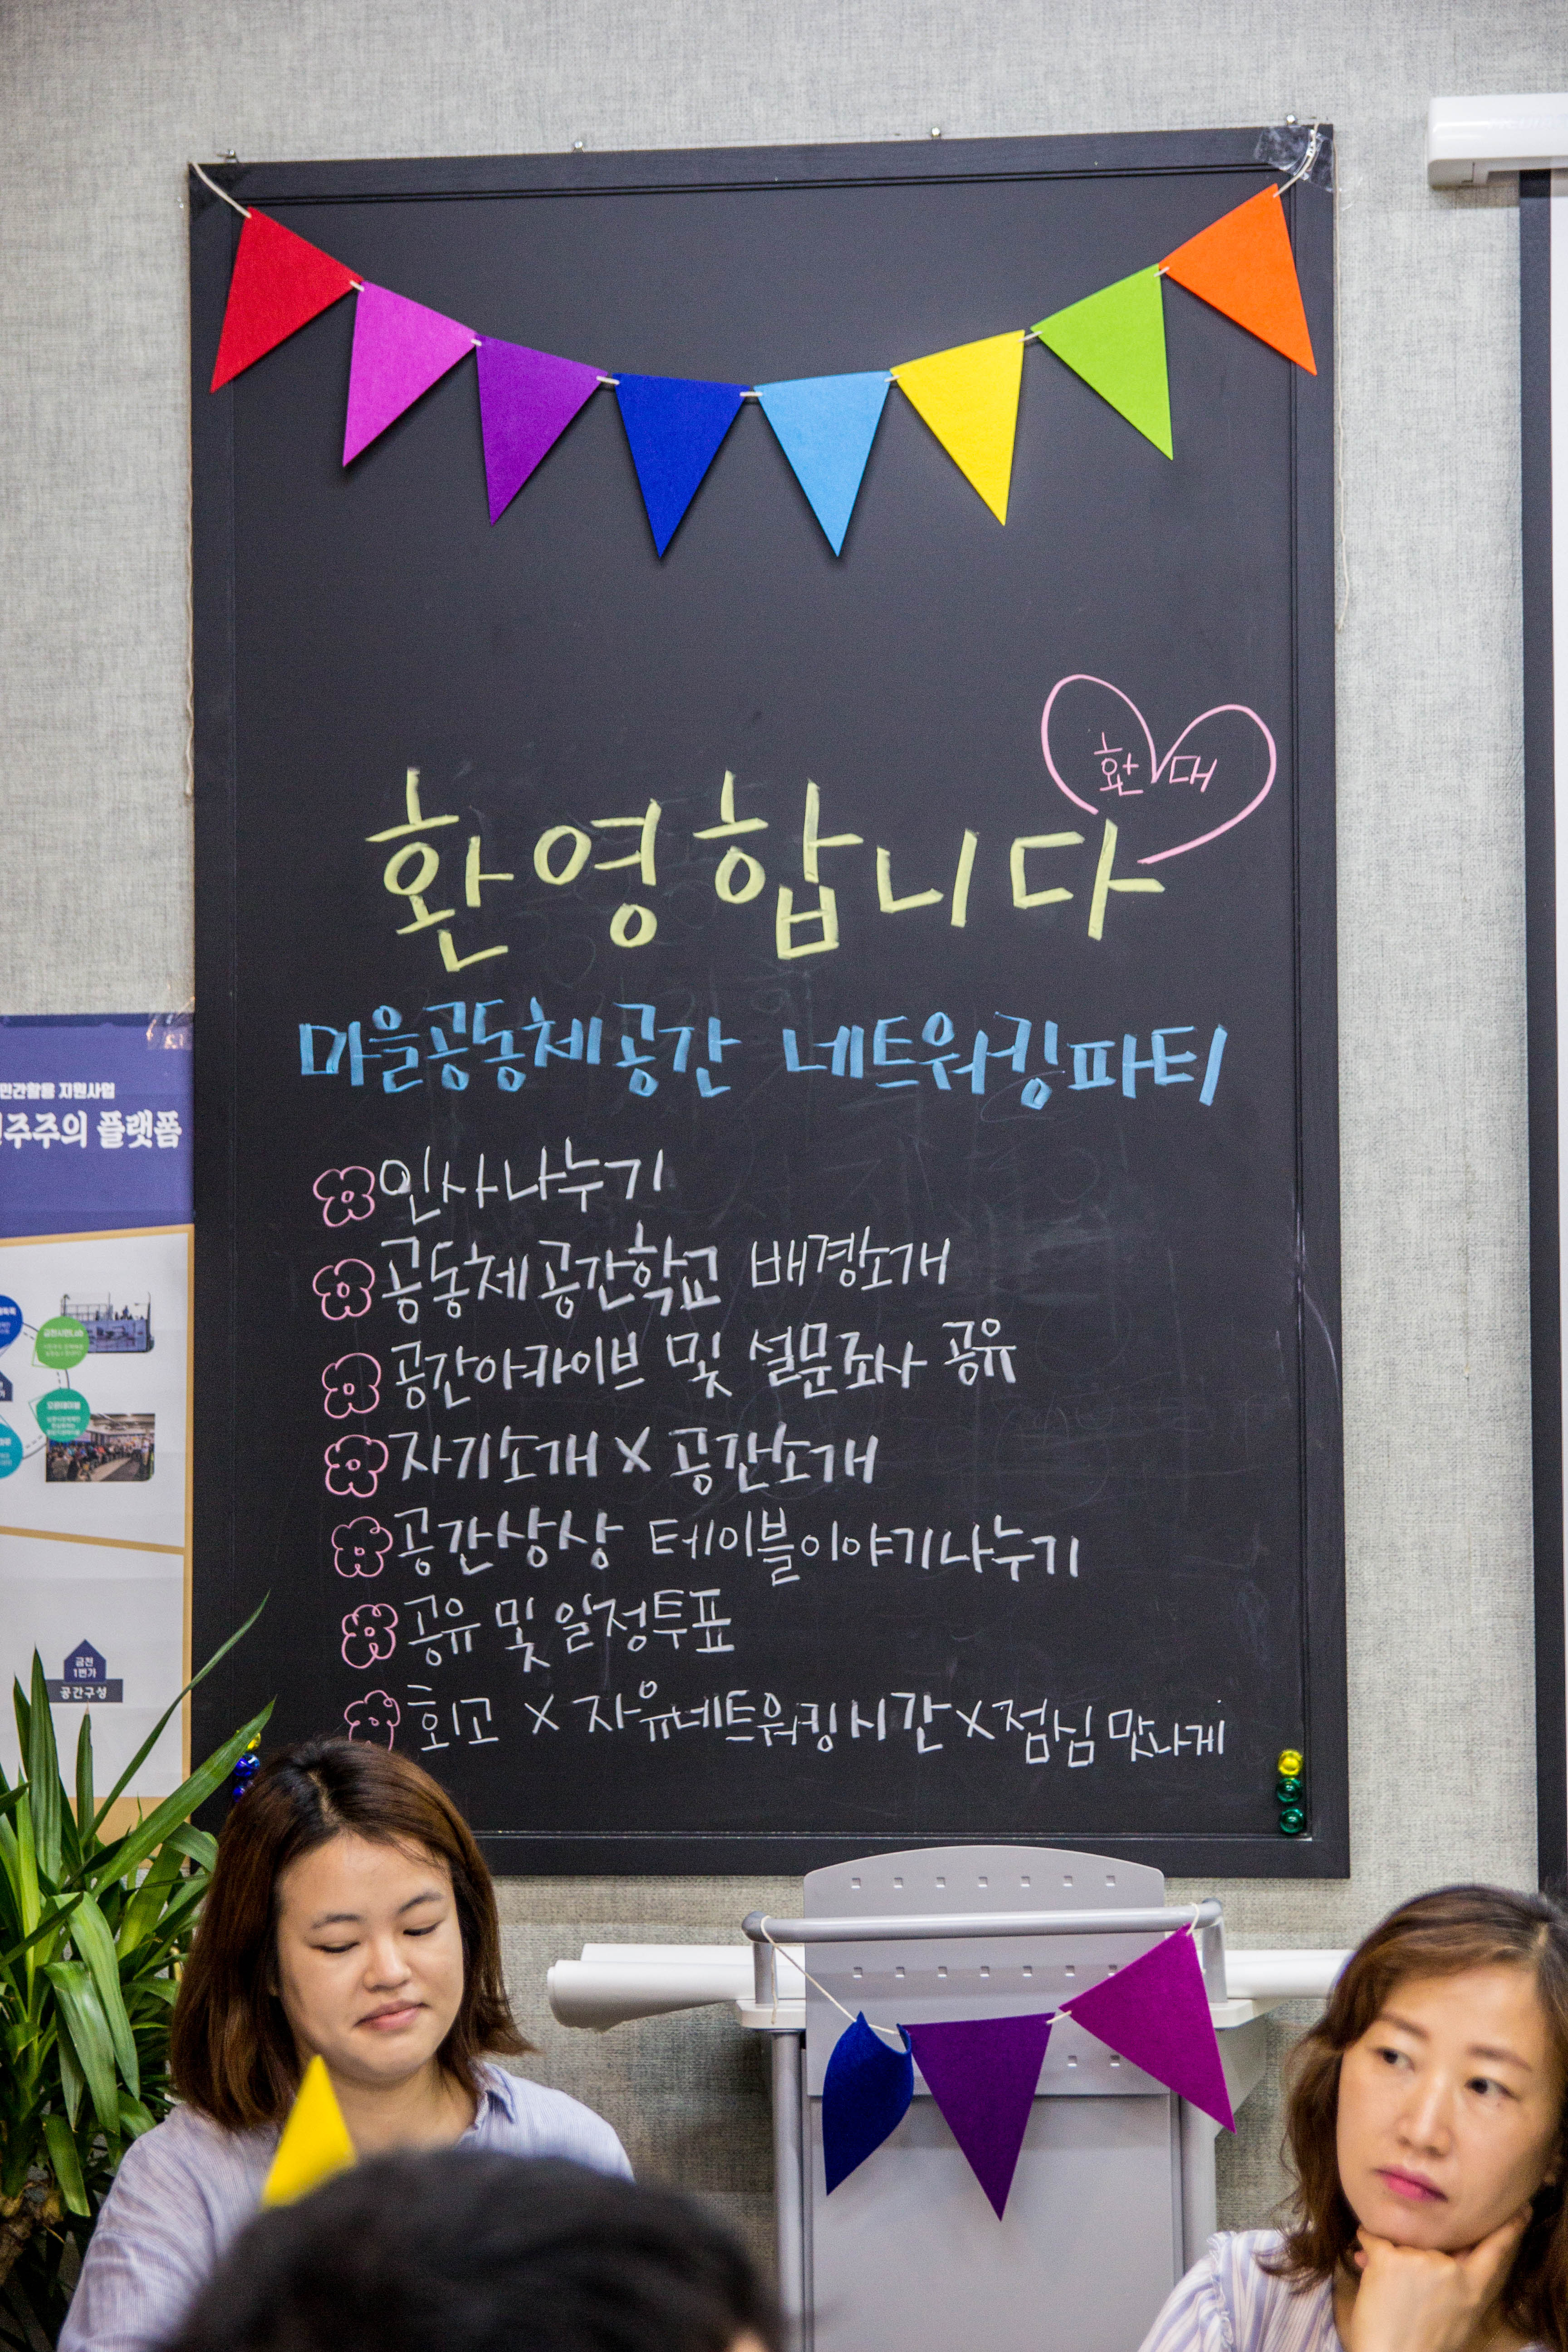 환대
환영합니다
마을공동체공간 네트워킹파티
인사나누기
공동체공간학교 배경소개
공간아카이브 및 설문조사 공유
자기소개 X 공간소개
공간상상 테이블이야기나누기
공유 및 일정투표
회고 X 자유네트워킹시간 X 점심 맛나게
민간활용 지원사업
주주의 플랫폼
금천
1번가
공간구성